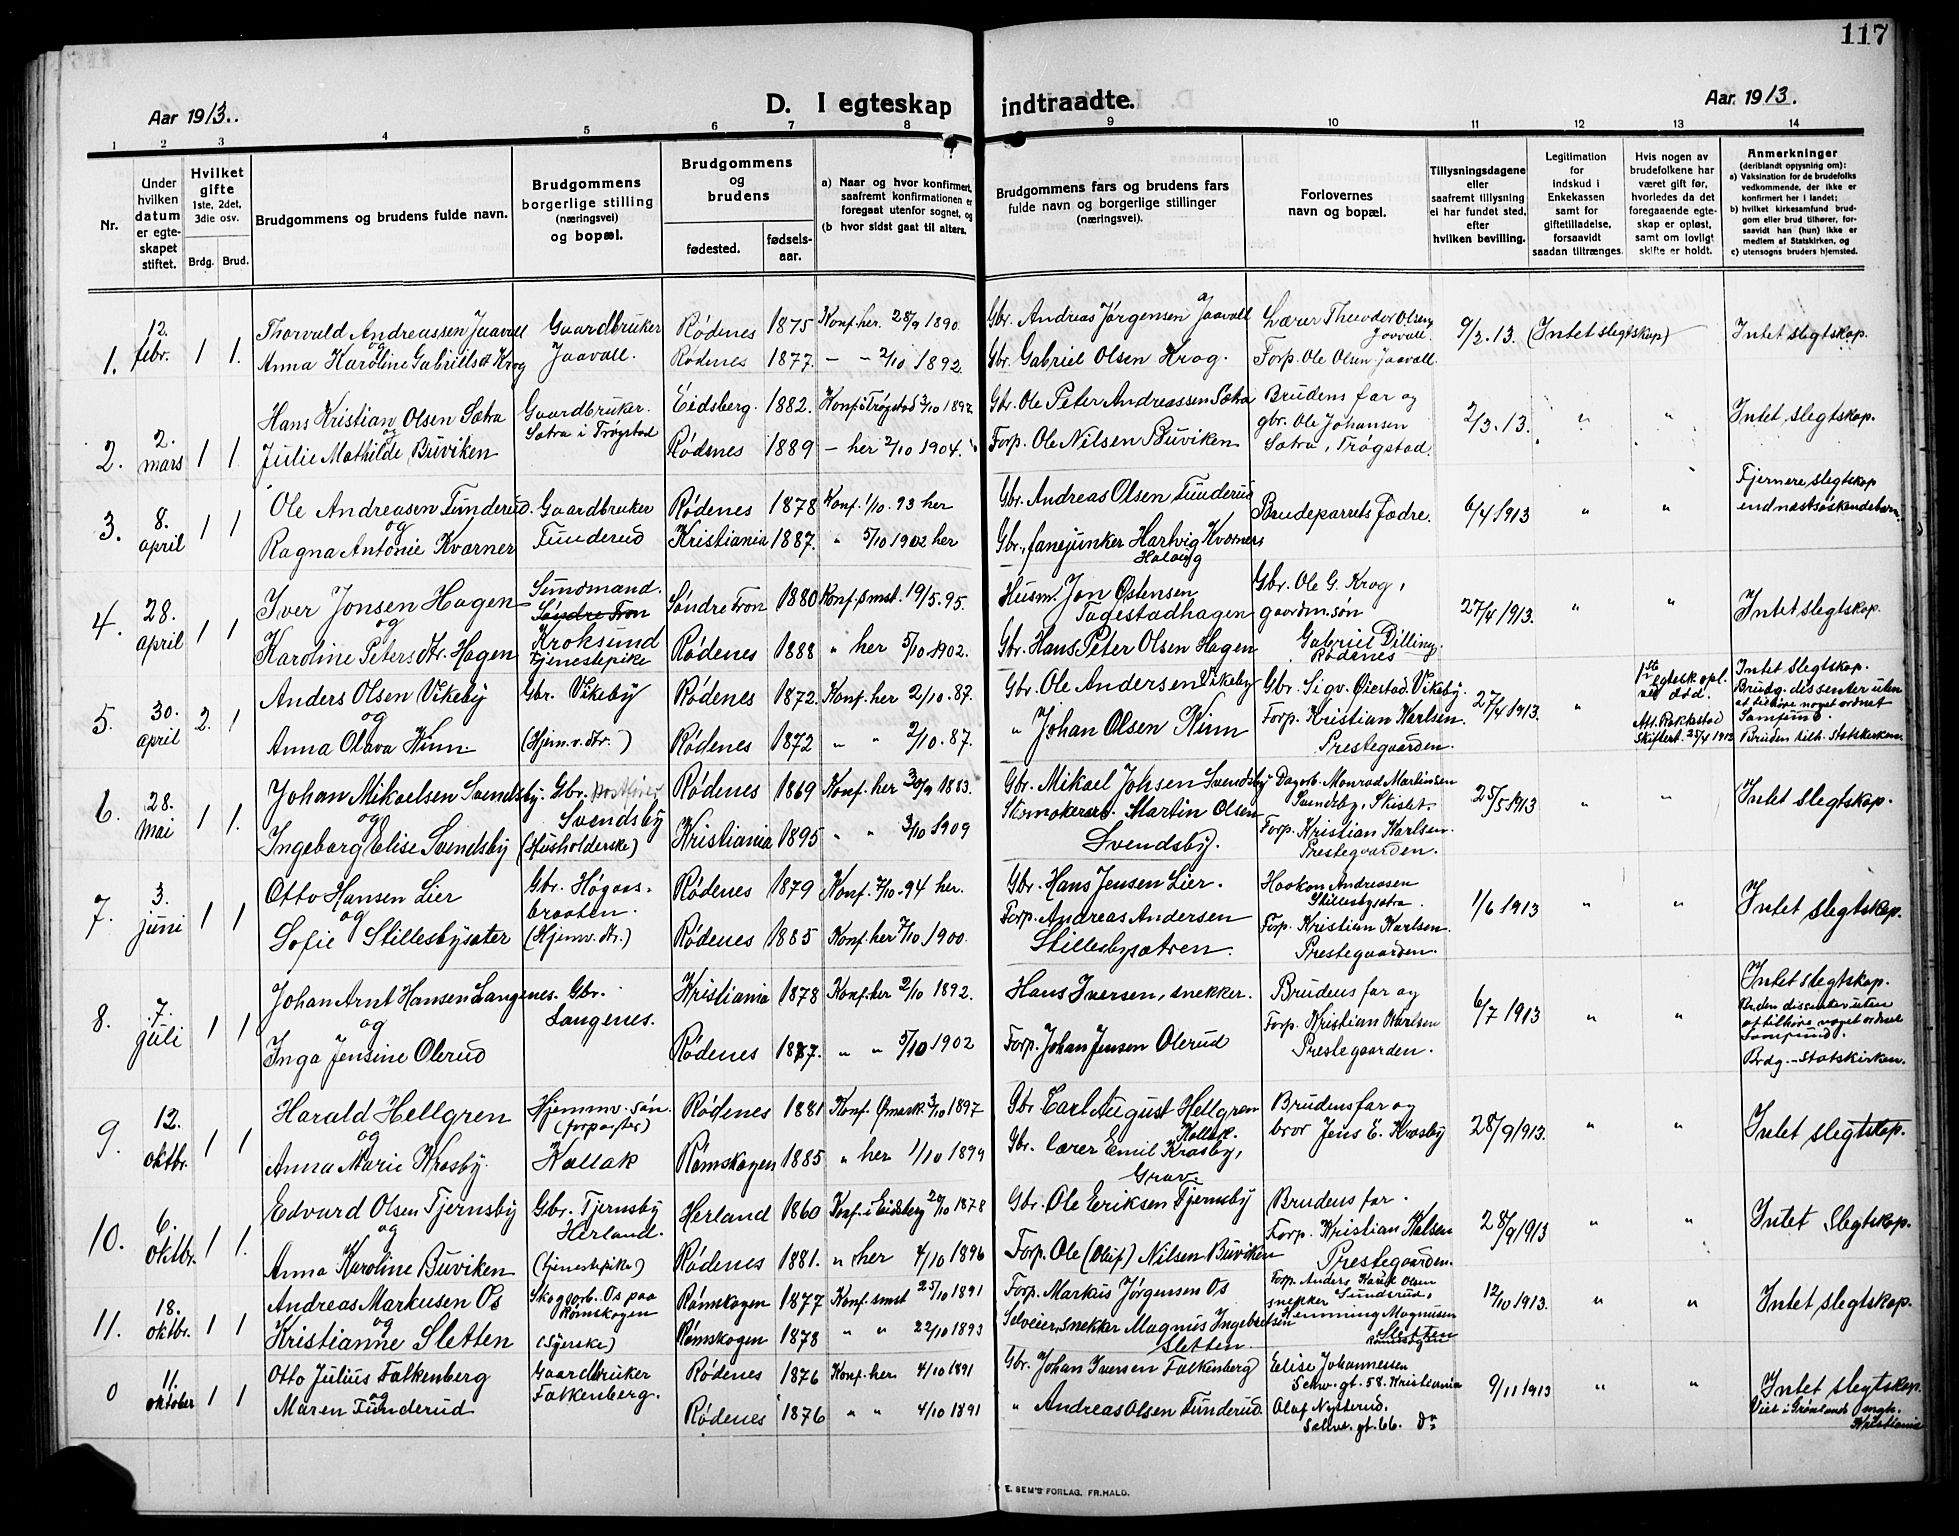 117
Aar 1913.
D. I egteskap indtraadte.
Aar 1913.
1 2 3 4 5 6 7 8 9 10 11 12 13 14
Nr.
Under hvilken datum er egteskapet stiftet.
Hvilket gifte 1ste, 2det, 3die osv.
Brdg. Brud.
Brudgommens og brudens fulde navn.
Brudgommens borgerlige stilling (næringsvei) og bopæl.
Brudgommens og brudens
fødested. fødselsaar.
a) Naar og hvor konfirmert, saafremt konfirmationen er foregaat utenfor sognet, og
(b hvor sidst gaat til alters.
Brudgommens fars og brudens fars fulde navn og borgerlige stillinger (næringsvei).
Forlovernes navn og bopæl.
Tillysningsdagene eller saafremt tillysning ei har fundet sted, efter hvilken bevilling.
Legitimation for indskud i Enkekassen samt for giftetilladelse, forsaavidt saadan tiltrænges.
Hvis nogen av brudefolkene har været gift før, hvorledes da det foregaaende egteskap er opløst, samt om lovligt skifte er holdt.
Anmerkninger (deriblandt opjysning om): a) Vaksination for de brudefolks vedkommende, der ikke er konfirmert her i landet; b) hvilket kirkesamfund brudgom eller brud tilhører, forsaavidt han (hun) ikke er medlem af Statskirken, og c) utensogns bruders hjemsted.
1. 12. febr. 1 1. Thorvald Andreassen Jaavall Gaardbruker Rødenes 1875 Konf. her. 28/9 1890. Gbr. Andreas Jørgensen Jaavall Lærer Theodor Olsen Jaavall. 9/2. 13. (Intet slegtskap) Intet slegtskap.
og Jaavall.
Anna Karoline Gabrielsdt Krog Rødenes 1877. — — 2/10 1892. Gbr. Gabriel Olsen Krog. Forp. Ole Olsen Jaavall
2. 2. mars 1 1. Hans Kristian Olsen Sætra Gaardbruker. Eidsberg. 1882. Konf. i Trøgstad 3/10 1897 Gbr. Ole Peter Andreassen Sætra Brudens far og 2/3. 13. " " Intet slegtskap.
og Sætra i Trøgstad gbr. Ole Johansen
Julie Mathilde Buviken Rødenes 1889 — her 2/10 1904. Forp. Ole Nilsen Buviken Sætra, Trøgstad.
3. 8. april 1 1 Ole Andreasen Tunderud. Gaardbruker Rødenes 1878 Konf. 1/10. 93 her Gbr. Andreas Olsen Tunderud Brudeparrets fædre. 6/4 1913 " " Fjernere slegtskap
og Tunderud end næstsøskendebarn.
Ragna Antonie Kværner Kristiania 1887. " 5/10 1902 her Gbr., fanejunker Hartvig Kværner
4. 28. april 1 1 Iver Jonsen Hagen Søndre Fron 1880 Konf. smst. 19/5. 95. Husm. Jon Østensen Gbr. Ole G. Krog, 27/4 1913. " " Intet slegtskap.
og Søndre Fron Tagestadhagen gaardm.søn
Karoline Petersdtr. Hagen Kroksund Tjenestepike Rødenes 1888 " her 5/10 1902. Gbr. Hans Peter Olsen Hagen Gabriel Dilling, Rødenes
5. 30. april 2. 1 Anders Olsen Vikeby Gbr. Vikeby Rødenes 1872. Konf. her 2/10. 87. Gbr. Ole Andersen Vikeby Gbr. Sigv. Øiestad, Vikeby. 27/4 1913. " 1ste egtesk. opl. ved død. Intet slegtskap.
og Brudg. dissenter uten at tilhøre noget ordnet Samfund.
Anna Olava Kinn (Hjemv. dtr.) Rødenes 1872 " " 2/10. 87. " Johan Olsen Kinn Forp. Kristian Karlsen. Prestegaarden. Att. Rakkestad Skifter. 25/4 1913 Bruden tilh. Statskirken.
6. 28. mai 1 1. Johan Mikaelsen Svendsby. Gbr. Rødenes 1869 Konf. her 30/9 1883. Gbr. Mikael Johsen Svendsby Dagarb. Monrad Martinsen 25/5 1913 " " Intet slegtskap.
og Svendsby Svendsby,
Ingeborg Elise Svendsby (Husholderske) Kristiania 1895 " " 3/10 1909 Martin Olsen Svendsby. Forp. Kristian Karlsen. Prestegaarden.
7. 3. juni 1 1 Otto Hansen Lier Gbr. Høgaasbraaten. Rødenes 1879 Konf. 7/10. 94 her. Gbr. Hans Jensen Lier. Haakon Andreasen Stillesbysætra. 1/6 1913 " " Intet slegtskap.
og
Sofie Stillesbysæter (Hjemv. dtr.) Rødenes 1885 Konf. her 7/10 1900. Forp. Andreas Andersen Stillesbysætren. Forp. Kristian Karlsen. Prestegaarden.
8. 7. juli 1 1 Johan Arnt Hansen Langenes. Gbr. Langenes. Kristiania 1878 Konf. her 2/10 1892. Hans Iversen, snekker. Brudens far og 6/7 1913 " " Intet slegtskap.
og Forp. Kristian Karlsen Bruden dissenter uten at tilhøre noget ordnet Samfund.
Inga Jensine Olerud Rødenes 1887. " " 5/10 1902 Forp. Johan Jensen Olerud Prestegaarden. Brdg. - Statskirken.
9. 12. oktbr. 1 1 Harald Hellgren Hjemmv. søn. (forpagter) Rødenes 1881 Konf. Ømark. 3/10 1897 Gbr Carl August Hellgren Kollak. Brudens far og 28/9 1913. " " Intet slegtskap.
og bror Jens E. Krasby
Anna Marie Krasby. Kollak Rømskogen 1885 " her 1/10 1899 Gbr. lærer Emil Krasby, Grav.
10. 6. oktbr. 1 1. Edvard Olsen Tjernsby Gbr. Tjernsby Herland. Herland 1860 Konf. i Eidsberg 20/10 1878 Gbr. Ole Eriksen Tjernsby Brudens far. 28/9 1913 " " Intet slegtskap.
og
Anna Karoline Buviken (tjenestepike) Rødenes 1881. " her 4/10 1896 Forp. Ole (Oluf) Nilsen Buviken Forp. Kristian Kalsen Prestegaarden.
11. 18. oktbr. 1 1 Andreas Markusen Os Skogsarb. Os paa Rømskogen Rømskogen 1877 Konf. smst 25/10 1891 Forp. Markus Jørgensen Os Forp. Anders Karel Olsen 12/10 1913. " " Intet slegtskap.
og snekker Sunderud,
Kristianne Sletten (Syerske) Rømskogen 1878 " " 22/10 1893 Selveier, snekker Magnus Ingebretsen Sletten. Hemming Magnusen Sletten Rømskogen
0 11. oktober 1 1 Otto Julius Falkenberg Gaardbruker Falkenberg. Rødenes 1876 Konf. her 4/10 1891 Gbr. Johan Iversen Falkenberg Elise Johannesen 9/11 1913 " " Intet slegtskap.
og Schw. gt. 58. Kristiania Viet i Grønlands mgh. Kristiania
Maren Tunderud Rødenes 1876 " " 4/10 1891 " Andreas Olsen Tunderud. Olaf Nysterud. gt. 66. do
E. SEM'S FORLAG, FR.HALD.